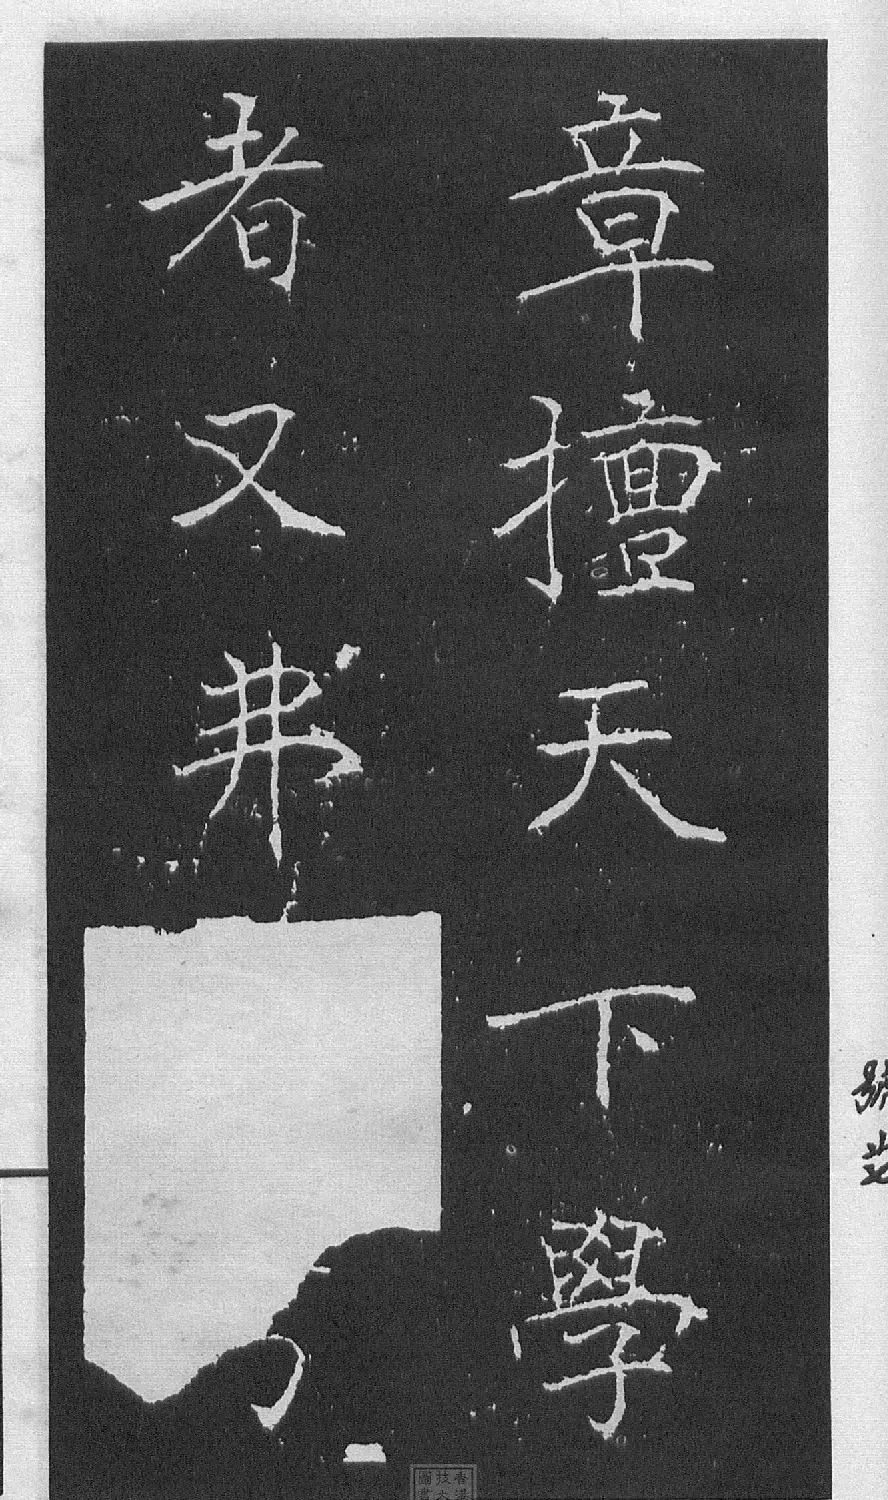 章擅天下學
者又弗
號